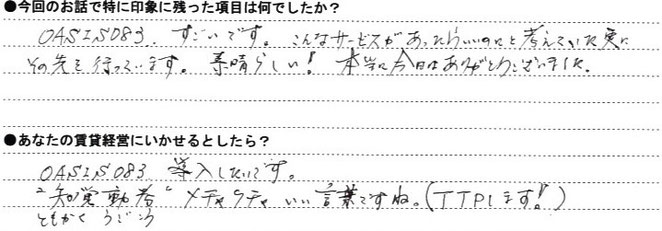 ●今回のお話で特に印象に残った項目は何でしたか？
OASIS083、すごいです。こんなサービスがあったらいいのにと考えていた更に
その先を行っています。素晴らしい！本当に今日はありがとうございました。
●あなたの賃貸経営にいかせるとしたら？
OASIS083 導入したいです。
"知覚動考" メチャクチャ いい言葉ですね。(TTPします！)
ともかく うごこう